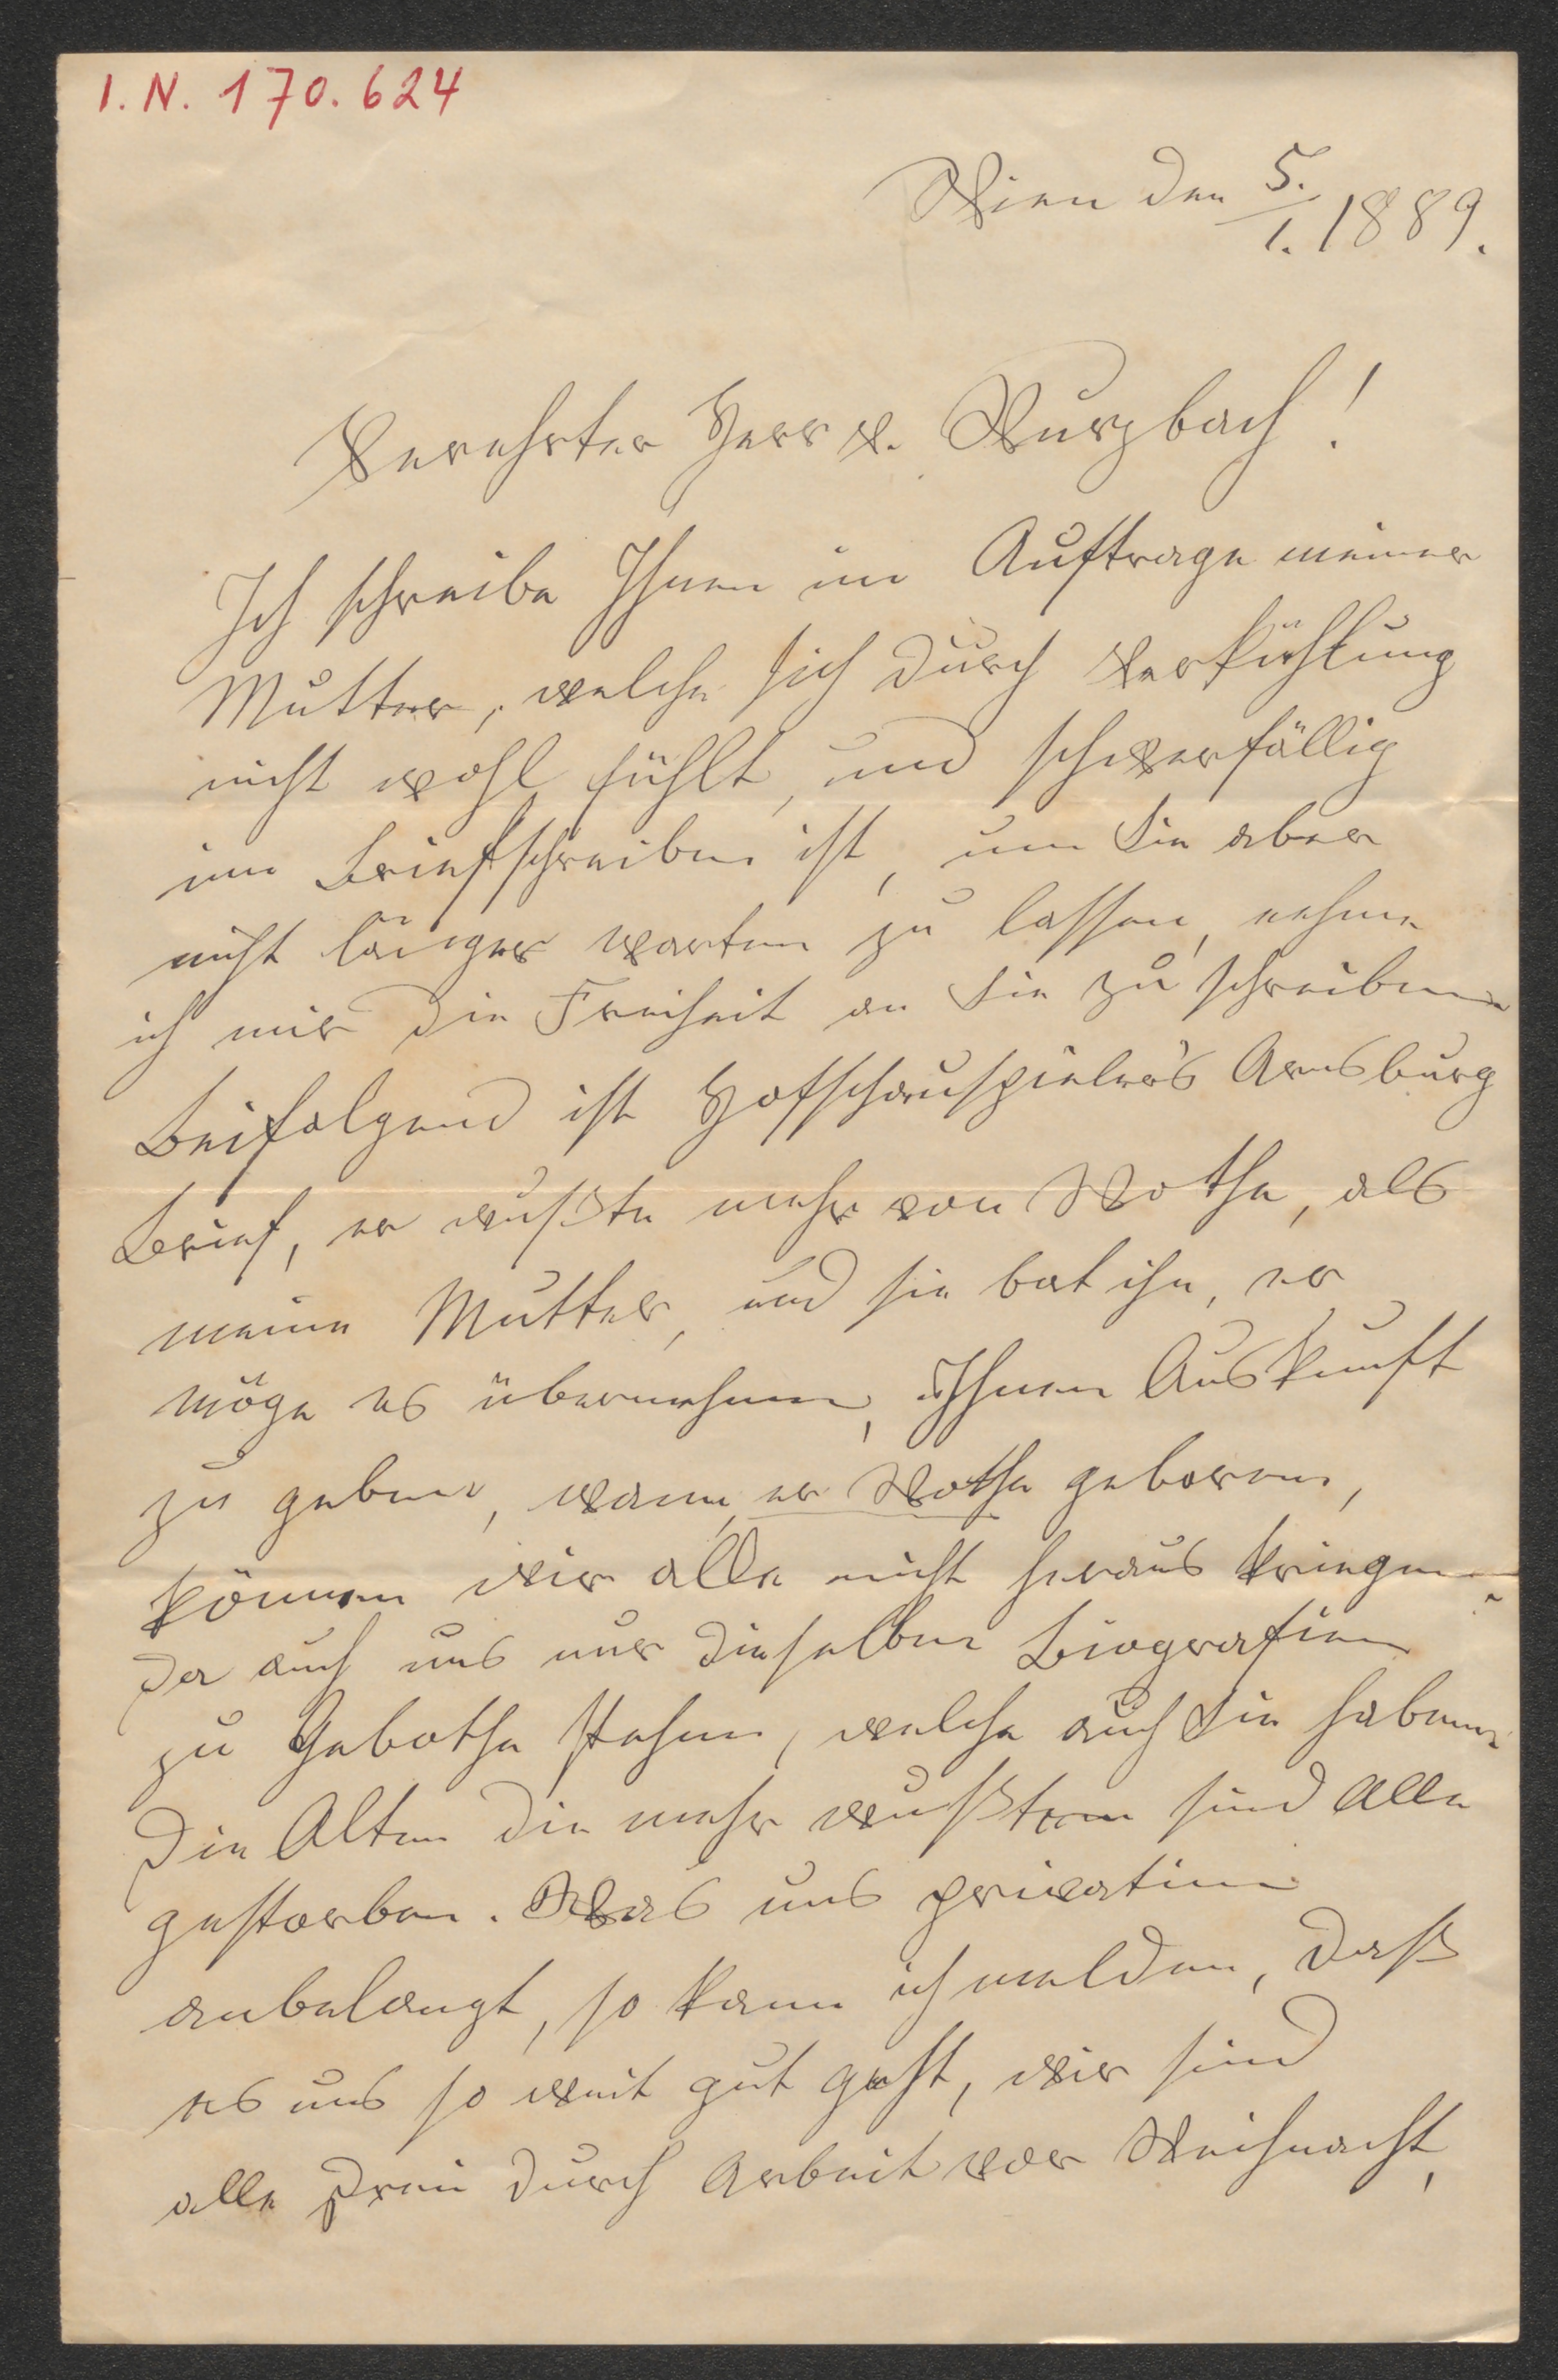 I. N. 170.624
Wien den 5./1. 1889.
Verehrter Herr v. Wurzbach!
Ich schreibe Ihnen im Auftrage meiner
Mutter, welche sich durch Verkühlung
nicht wohl fühlt, und schwerfällig
im Briefschreiben ist, um Sie aber
nicht länger warten zu lassen, nehme
ich mir die Freiheit an Sie zu schreiben
Beifolgend ist Hofschauspieler's Arnsburg
Brief, er wußte mehr von Wothe, als
meine Mutter, und sie bat ihn, er
möge es übernehmen, Ihnen Auskunft
zu geben, wann er Wothe geboren,
können wir alle nicht heraus kriegen
da auch uns nur dieselben Biografien
zu Gebothe stehen, welche auch Sie haben
die Alten die mehr wußten sind alle
gestorben. Was uns privatim
anbelangt, so kann ich melden, daß
es uns so weit gut geht, wir sind
alle drei durch Arbeit vor Weihnacht,